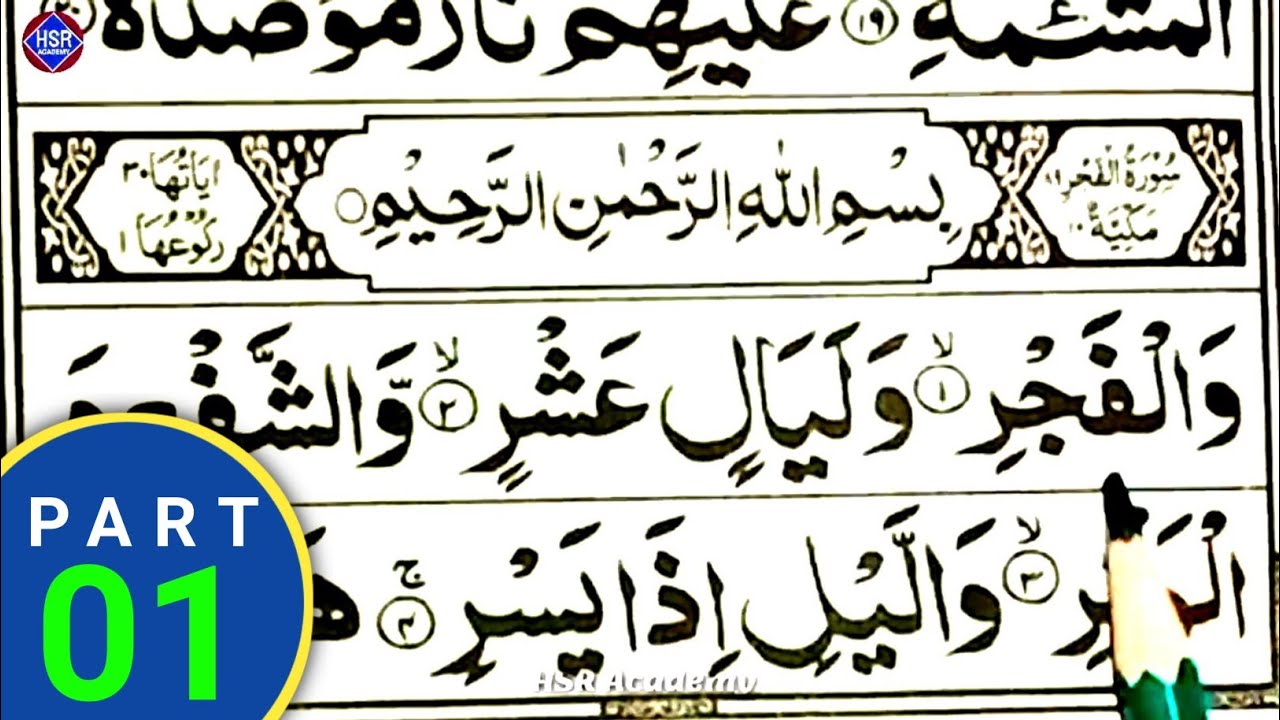 HSR
ACADEMY
الْمَشْـَٔمَةِ ۝١٩ عَلَيْهِمْ نَارٌ مُّؤْصَدَةٌ ۝٢٠
سُوْرَةُ الْفَجْرِ ٨٩
مَكِّيَّةٌ ١٠
بِسْمِ اللّٰهِ الرَّحْمٰنِ الرَّحِيْمِ
اٰيَاتُهَا ٣٠
رُكُوْعُهَا ١
وَالْفَجْرِ ۙ۝١ وَلَيَالٍ عَشْرٍ ۙ۝٢ وَّالشَّفْعِ وَ
ۙ۝٣ وَالَّيْلِ اِذَا يَسْرِ ۚ۝٤
PART
01
HSR Academy